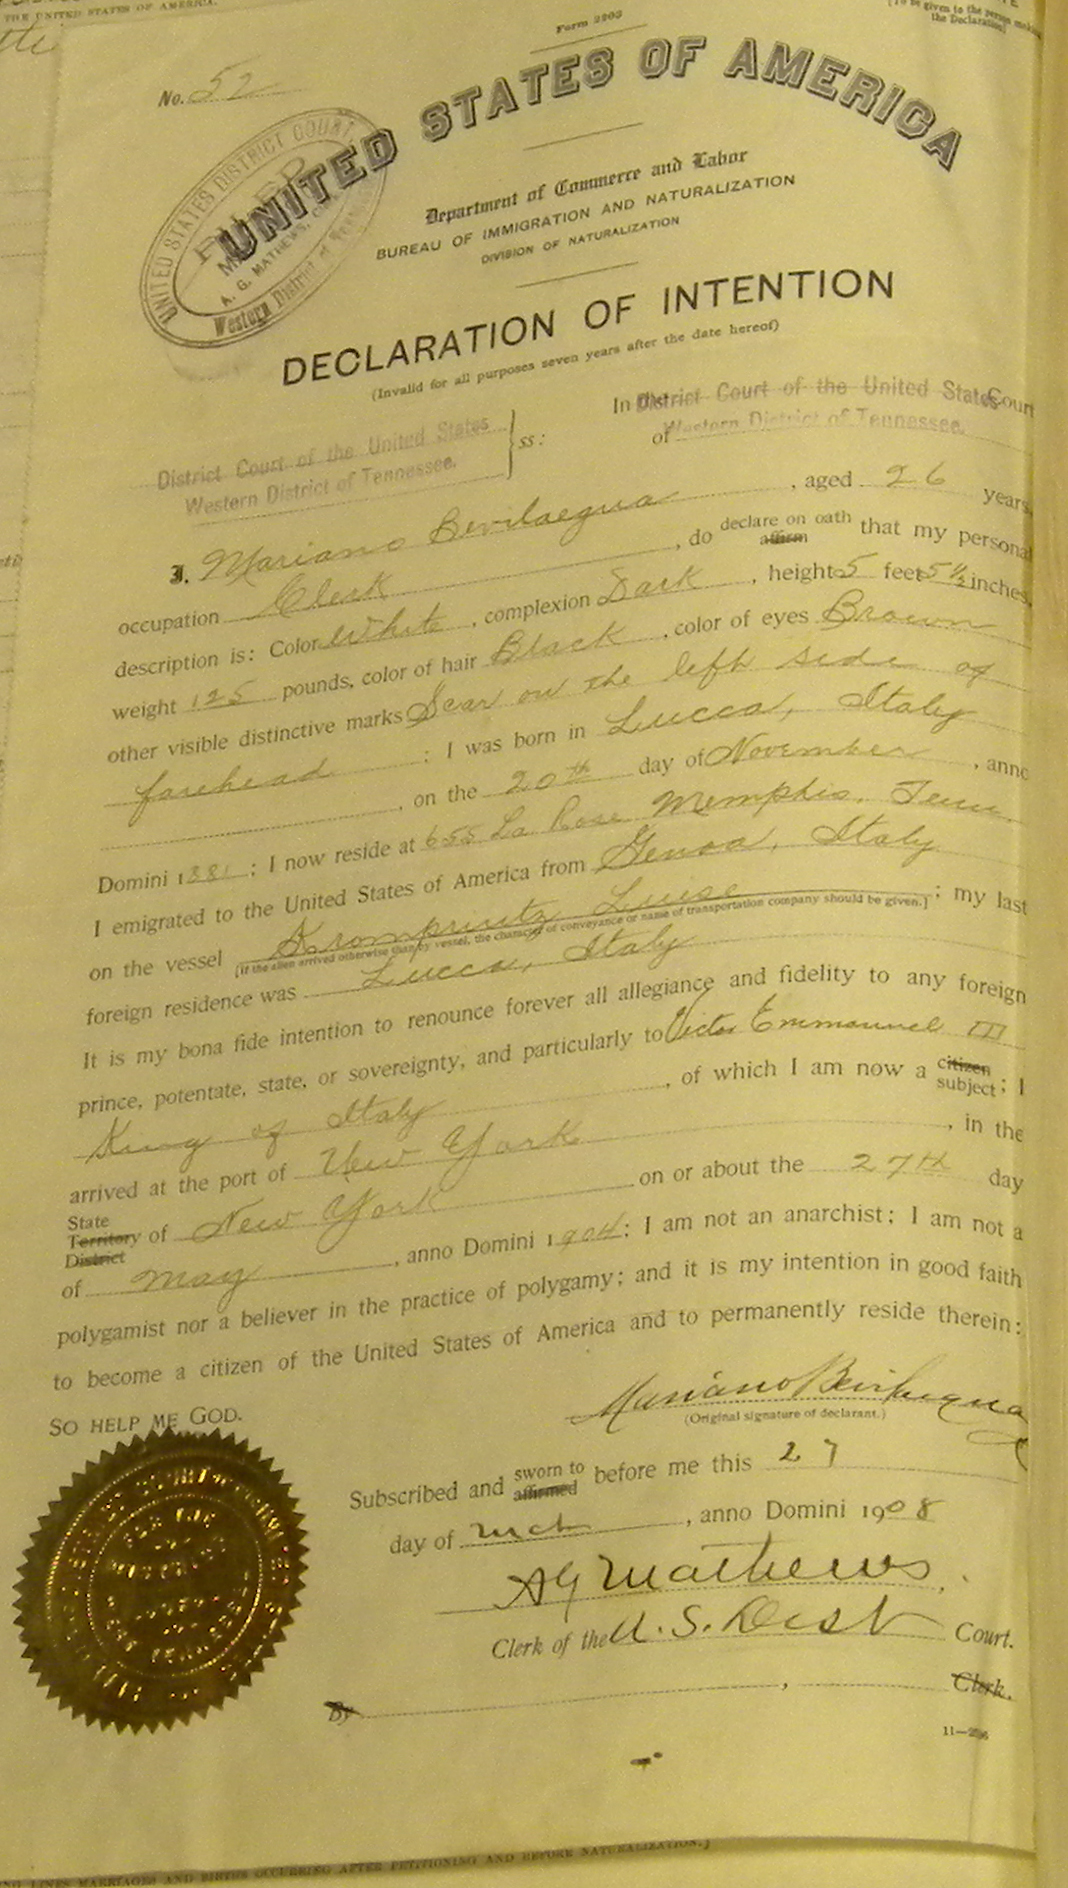 THE UNITED STATES OF AMERICA.
[To be given to the person making
the Declaration]
Form 2203
No. 52
UNITED STATES OF AMERICA
UNITED STATES DISTRICT COURT,
FILED
A. G. MATHEWS,
Western District of
Department of Commerce and Labor
BUREAU OF IMMIGRATION AND NATURALIZATION
DIVISION OF NATURALIZATION
DECLARATION OF INTENTION
(Invalid for all purposes seven years after the date hereof)
In the District Court of the United States Court
of Western District of Tennessee.
District Court of the United States
Western District of Tennessee.
ss:
I, Mariano Bevilaequa, aged 26 years,
occupation Clerk, do declare on oath affirm that my personal
description is: Color White, complexion Dark, height 5 feet 5 1/2 inches,
weight 125 pounds, color of hair Black, color of eyes Brown
other visible distinctive marks Scar on the left side of
forehead; I was born in Lucca, Italy
, on the 20th day of November, anno
Domini 1881; I now reside at 655 La Rose Memphis, Tenn
I emigrated to the United States of America from Genoa, Italy
on the vessel Kromprintz Luise; my last
[If the alien arrived otherwise than by vessel, the character of conveyance or name of transportation company should be given.]
foreign residence was Lucca, Italy
It is my bona fide intention to renounce forever all allegiance and fidelity to any foreign
prince, potentate, state, or sovereignty, and particularly to Victor Emmanuel III
King of Italy, of which I am now a citizen subject; I
arrived at the port of New York, in the
State Territory District of New York on or about the 27th day
of May, anno Domini 1904; I am not an anarchist; I am not a
polygamist nor a believer in the practice of polygamy; and it is my intention in good faith
to become a citizen of the United States of America and to permanently reside therein:
SO HELP ME GOD.
Mariano Bevilaqua
(Original signature of declarant.)
Subscribed and sworn to affirmed before me this 27
day of Mch, anno Domini 1908
A G Mathews,
Clerk of the U. S. Dist Court.
By , Clerk.
MARRIAGES AND BIRTHS OCCURRING AFTER PETITIONING AND BEFORE NATURALIZATION.]